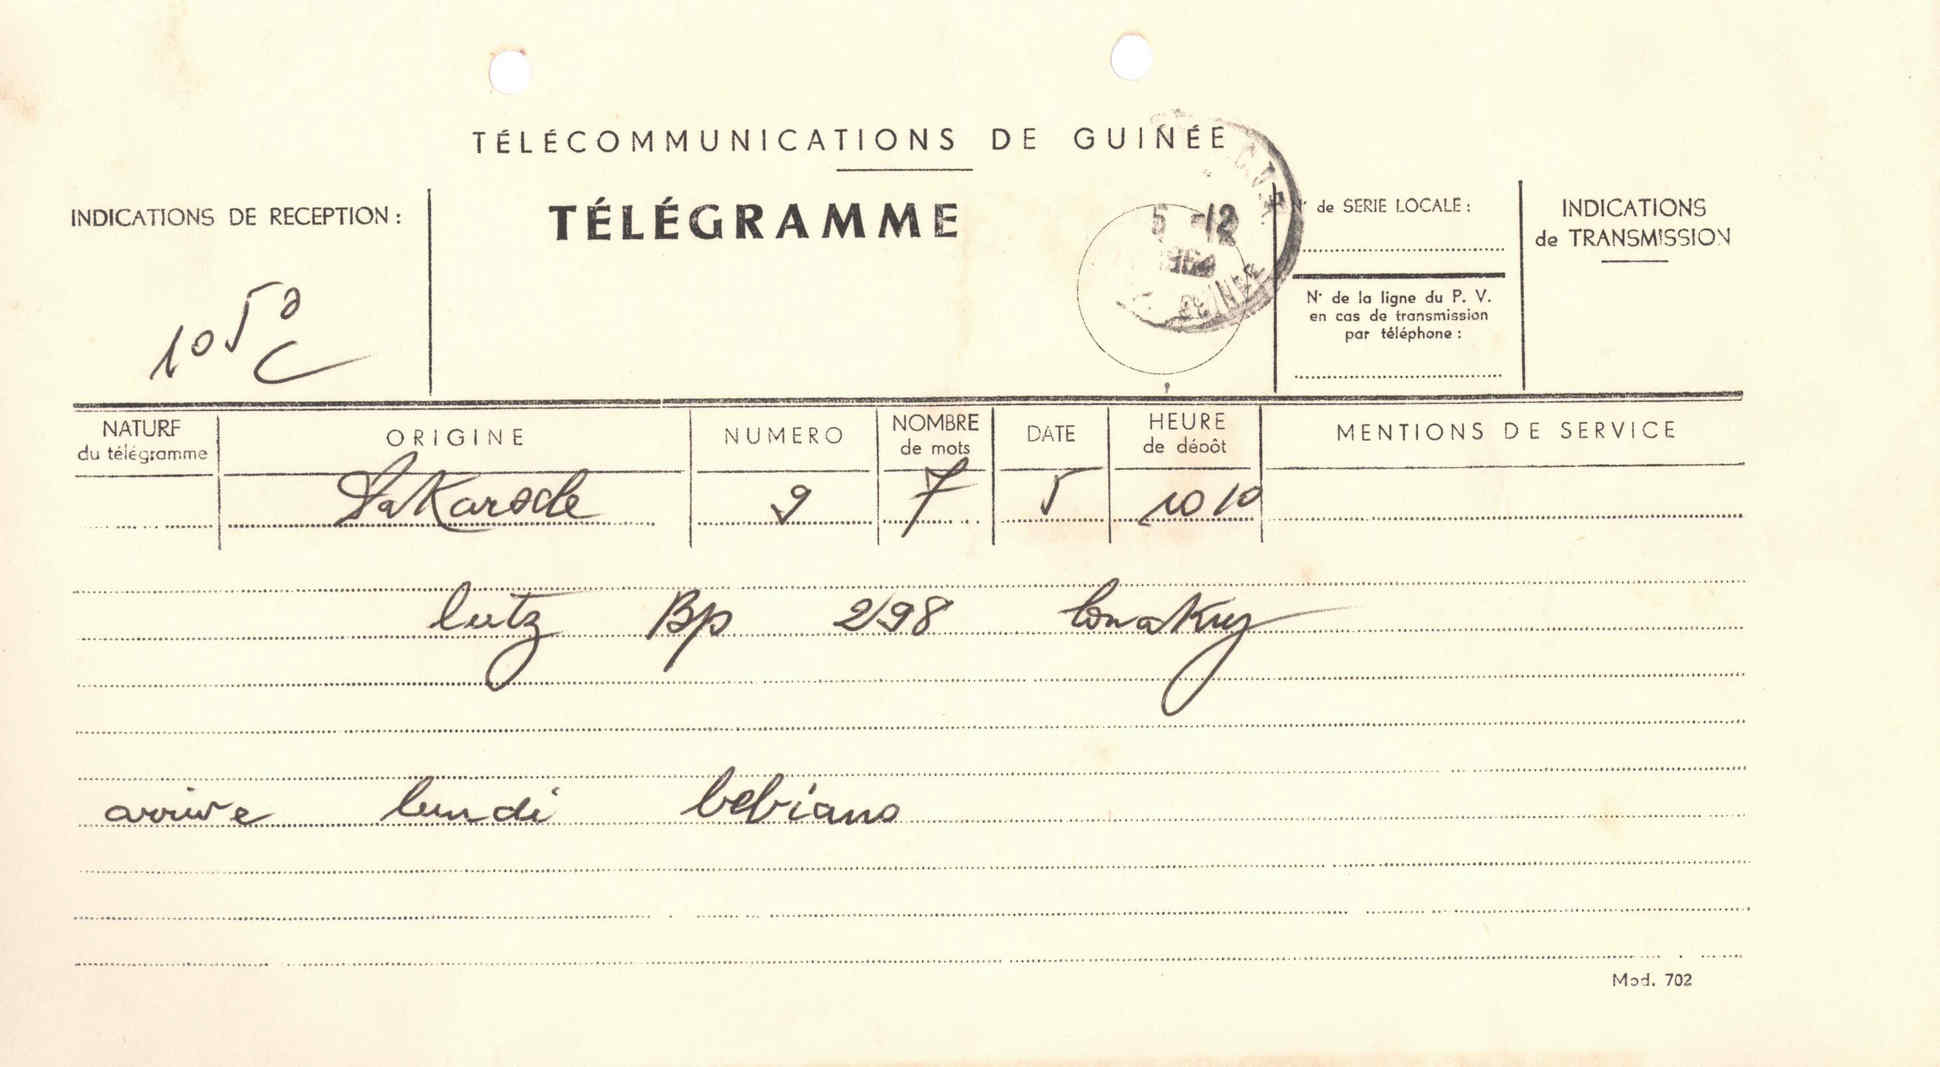 TÉLÉCOMMUNICATIONS DE GUINÉE
INDICATIONS DE RECEPTION :
1050
TÉLÉGRAMME
5 -12
1964
GUINEE
N° de SERIE LOCALE :
N° de la ligne du P. V.
en cas de transmission
par téléphone :
INDICATIONS
de TRANSMISSION
NATURE
du télégramme
ORIGINE
NUMERO
NOMBRE
de mots
DATE
HEURE
de dépôt
MENTIONS DE SERVICE
9 7 5 1010
lutz Bp 298 Conakry
arrive lundi bebiano
Mod. 702